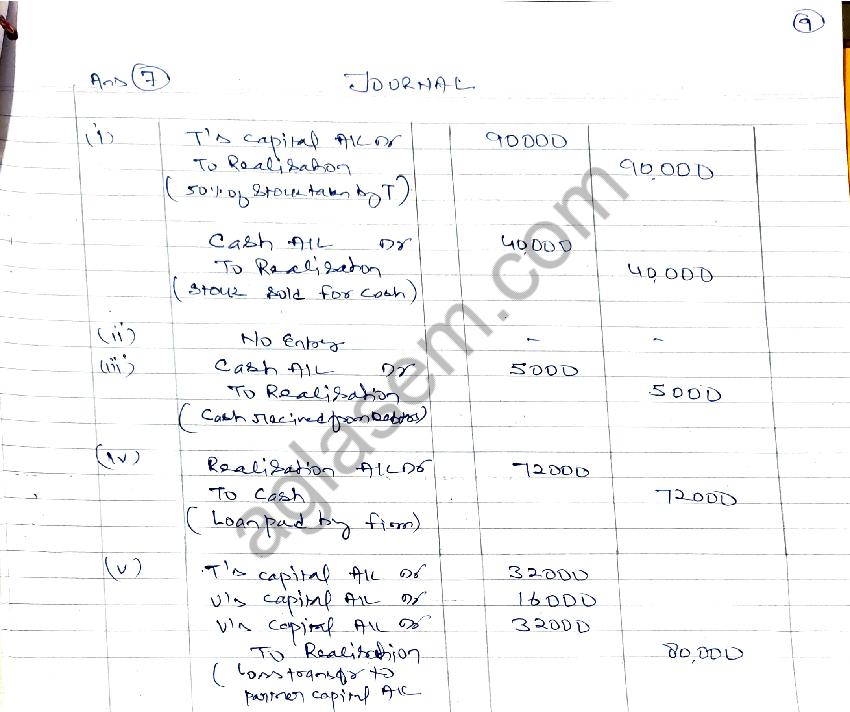 9
Ans 7 JOURNAL
(i) T's capital A/c Dr 90000
To Realisation 90,000
(50% of stock taken by T)
Cash A/c Dr 40,000
To Realisaton 40,000
(Stock sold for cash)
(ii) No Entry - -
(iii) Cash A/c Dr 5000
To Realisation 5000
(Cash recived from Debtors)
(iv) Realisation A/c Dr 72000
To Cash 72000
(Loan paid by firm)
(v) T's capital A/c Dr 32000
U's capital A/c Dr 16000
V's capital A/c Dr 32000
To Realisation 80,000
(Loss transfer to
partner capital A/c
aglasem.com